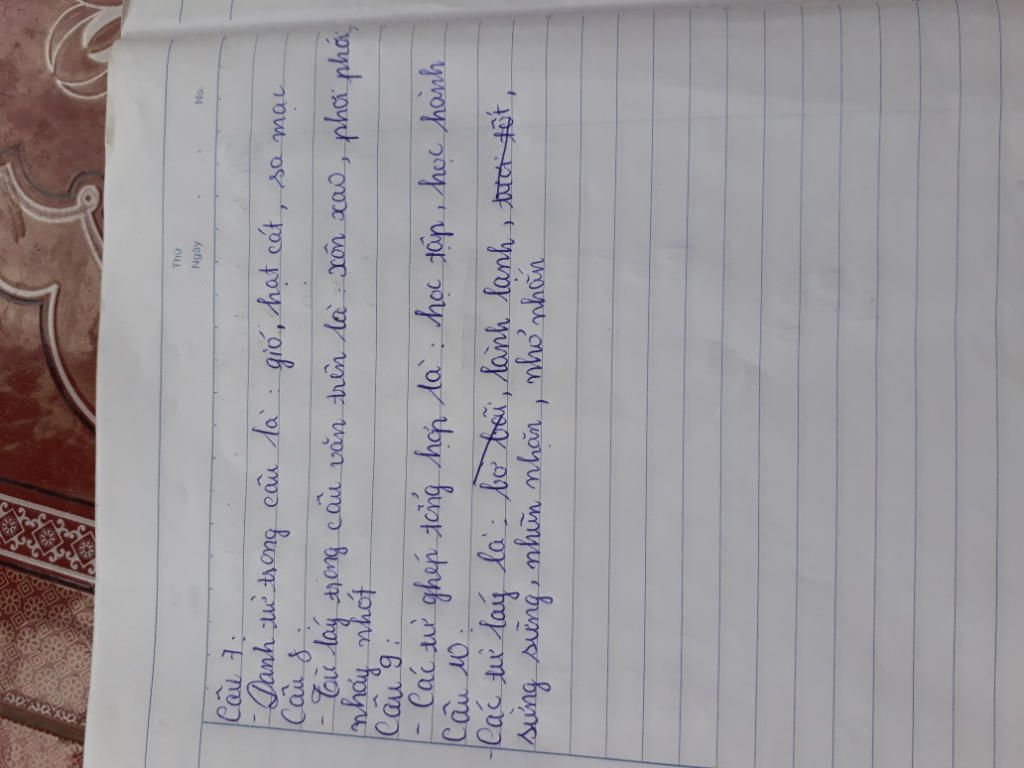 Thứ
Ngày
No.
Câu 7:
- Danh từ trong câu là : gió, hạt cát, sa mạc
Câu 8:
- Từ láy trong câu văn trên là : xôn xao, phơi phới,
nhảy nhót
Câu 9:
- Các từ ghép tổng hợp là : học tập, học hành
Câu 10:
- Các từ láy là : bờ bãi, lành lanh, tươi tốt,
sừng sững, nhũn nhặn, nhỏ nhắn